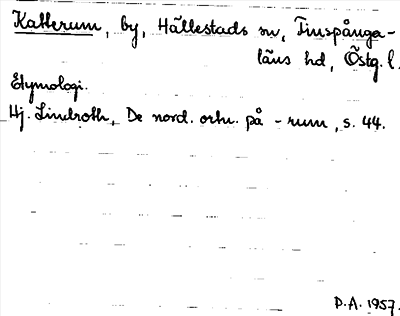 Katterum, by, Hällestads sn, Finspånga-
läns hd, Östg. l.
Etymologi.
Hj. Lindroth, De nord. ortn. på -rum, s. 44.
D.A. 1957.